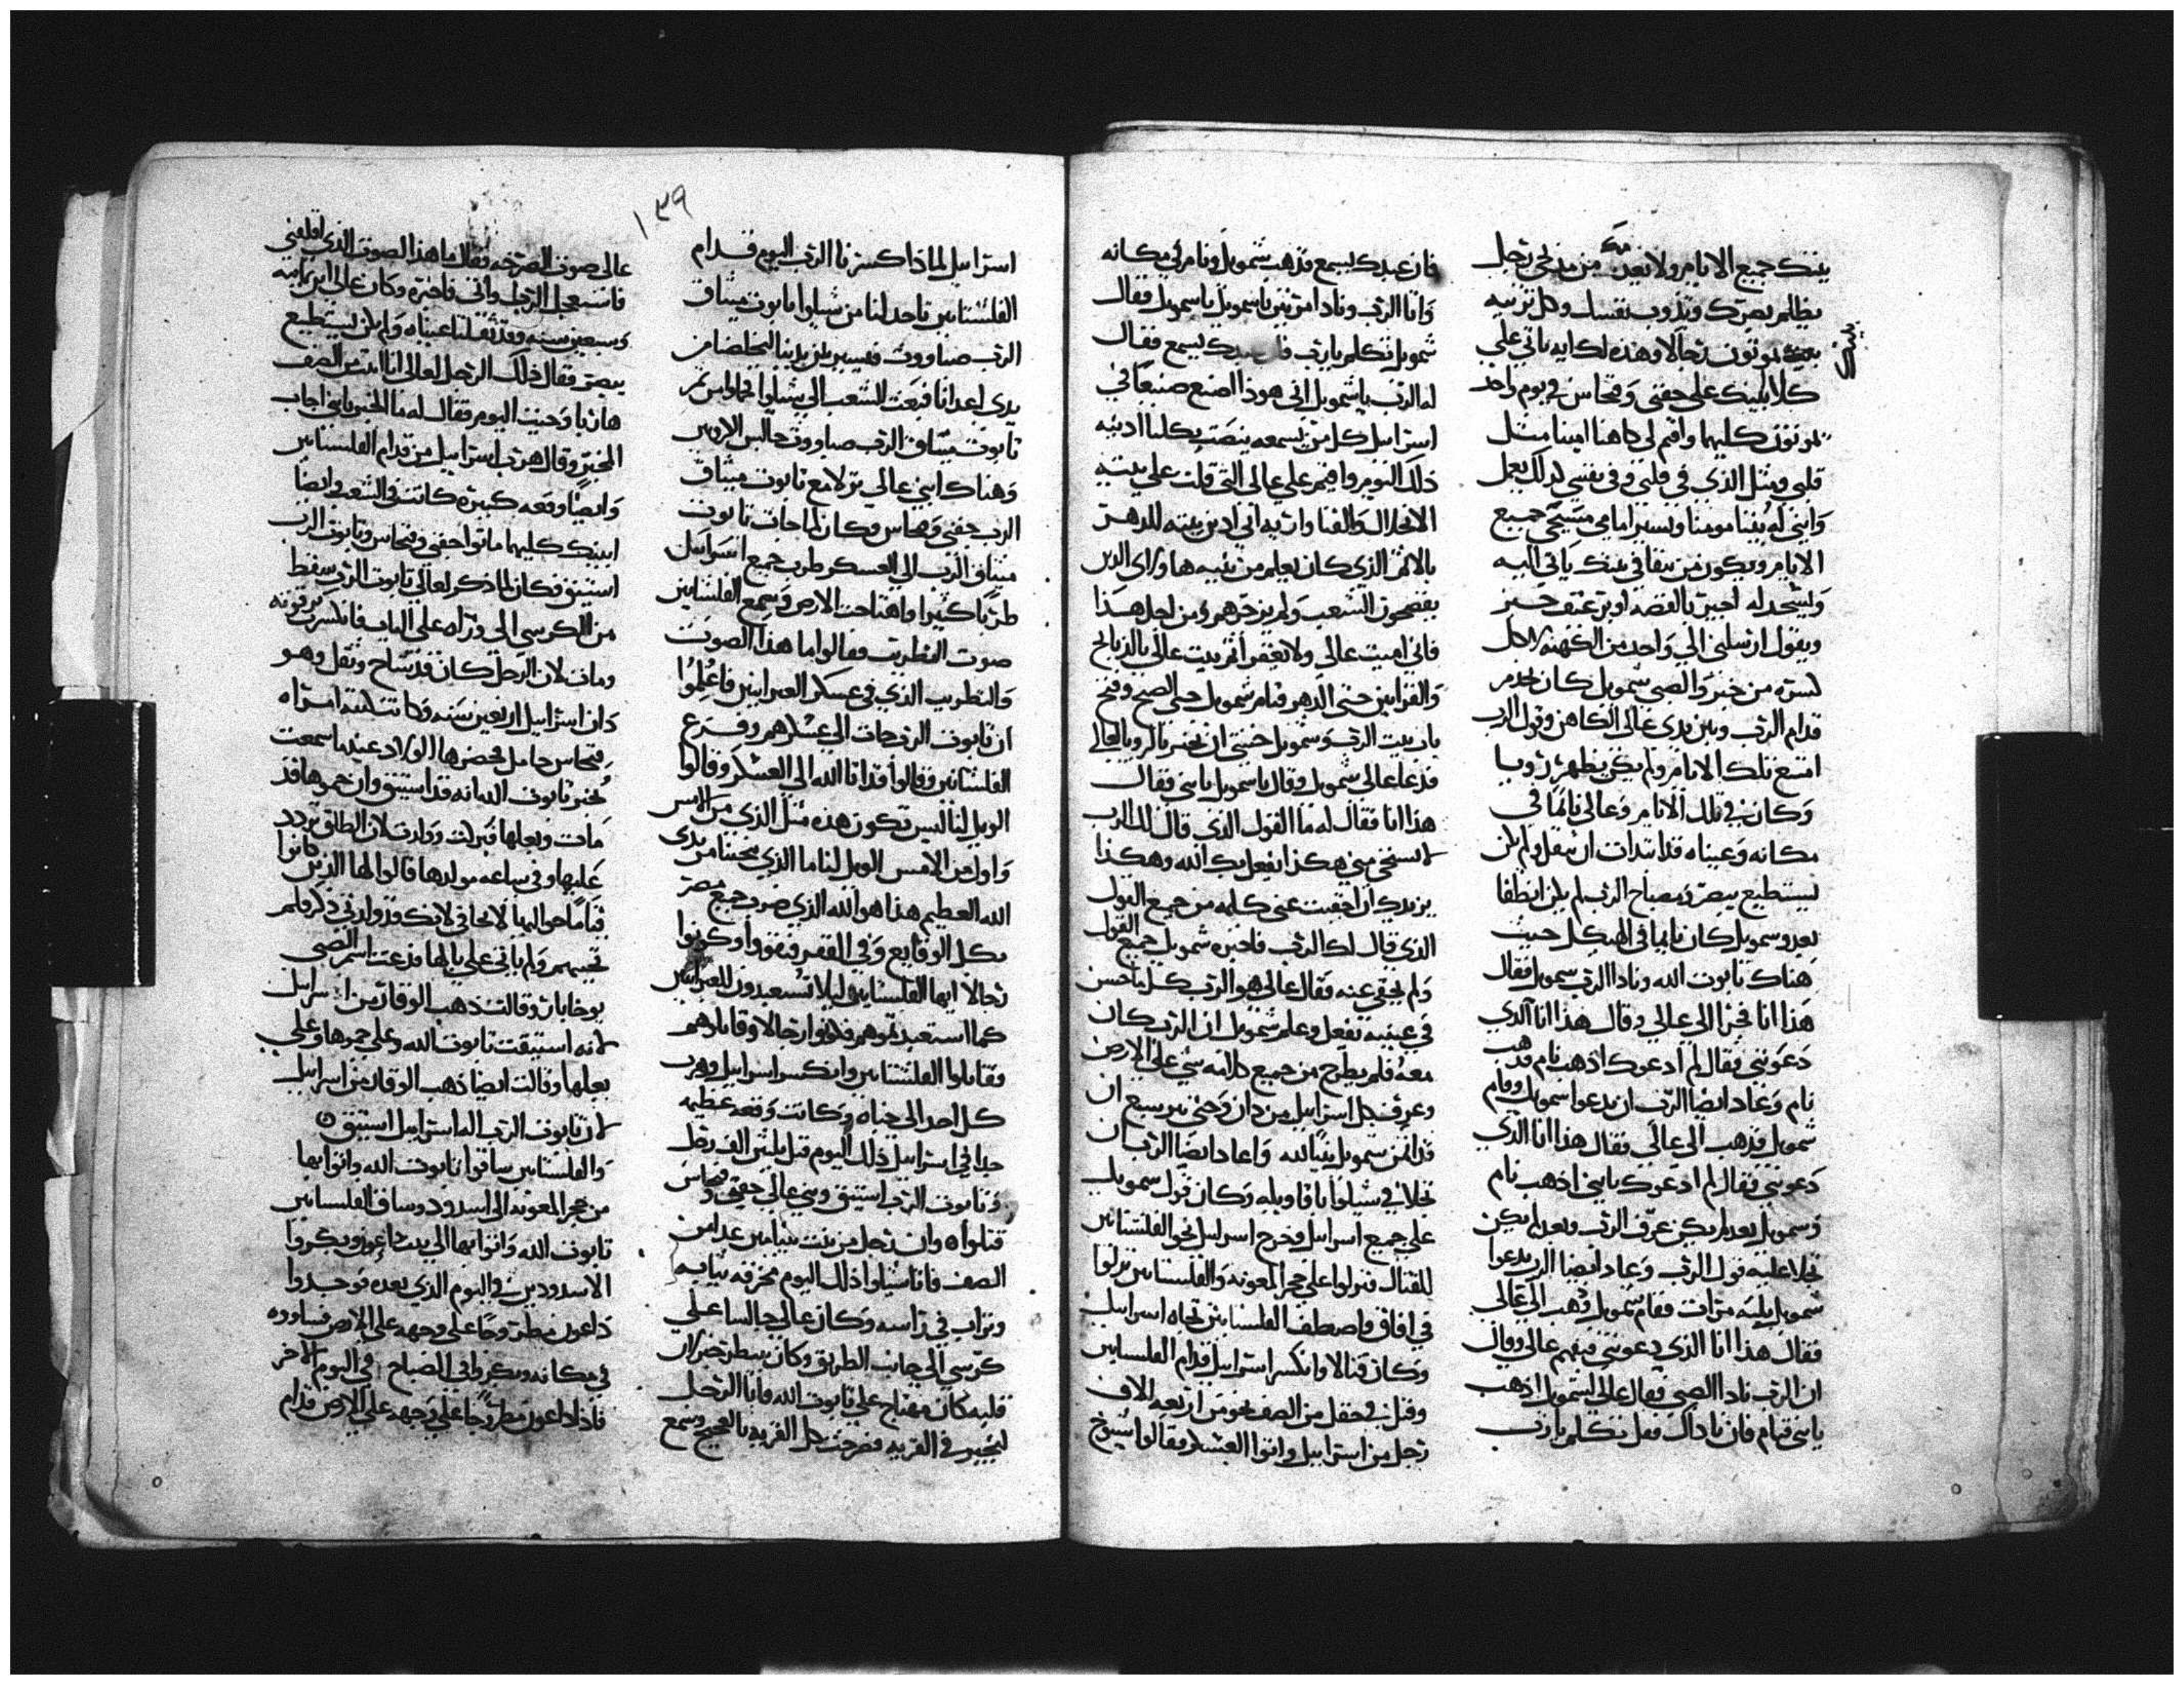 بيتك جميع الايام ولا نعيد من مذبحي رجل
يظلم بصرك وتدوب نفسك وكل تربيه
بيتك يموتون رجالا وهذه لك ايه ياتي علي
كلا ابنيك علي حفني وفنحاس في يوم واحد
يموتون كليهما واقيم لي كاهنا امينا مثل
قلبي ومثل الذي في قلبي وفي نفسي كذلك يعمل
وابني له بيتا مومنا ويسير امامي مسيحي جميع
الايام ويكون من يبقا في بيتك ياتي اليه
ويسجد له اجير بالفضه او برغيف خبز
ويقول ارسلني الي واحد من الكهنه لاكل
كسره من خبز والصبي شمويل كان يخدم
قدام الرب وبين يدي عالي الكاهن وقول الرب
امتنع تلك الايام ولم يكن يظهر رويا
وكان في تلك الايام وعالي نايما في
مكانه وعيناه قد ابتدات ان تثقل ولم يكن
يستطيع يبصر ومصباح الرب لم يكن انطفا
بعد وسمويل كان نايما في الهيكل حيث
هناك تابوت الله ونادا الرب سمويل فقال
هذا انا فجرا الي عالي وقال هذا انا الذي
دعوتني فقال لم ادعوك اذهب نام فذهب
نام وعاد ايضا الرب ان يدعوا سمويل وقام
شمويل فذهب الي عالي فقال هذا انا الذي
دعوتني فقال لم ادعوك يابني اذهب نام
وسمويل بعد لم يكن عرف الرب وبعد لم يكن
تجلا عليه قول الرب وعاد ايضا الرب يدعوا
شمويل ثلثه مرات فقام شمويل وذهب الي عالي
فقال هذا انا الذي دعوتني ففهم عالي وقال
ان الرب نادا الصبي فقال عالي لشمويل اذهب
يابني فنام فان ناداك فقل تكلم يارب
فان عبدك يسمع فذهب شمويل ونام في مكانه
واتا الرب ونادا مرتين ياسمويل ياسمويل فقال
شمويل تكلم يارب فان عبدك يسمع فقال
له الرب ياشمويل اني هوذا اصنع صنيعا في
اسراييل كل من يسمعه ينصت بكلتا ادنيه
ذلك اليوم واقيم علي عالي التي قلت علي بيته
بالاثم الذي كان يعلم من بنيه هاولاي الذين
يفضحون الشعب ولم يزجرهم ومن اجل هذا
فاني اميت عالي ولا تغفر أثم بيت عالي بالذبايح
والقرابين حتي الدهر فنام شمويل حتي الصبح وفتح
باب بيت الرب وشمويل خشي ان يخبر بالرويا لعالي
فدعا عالي شمويل وقال ياسمويل يابني فقال
هذا انا فقال له ما القول الذي قال لك الرب
لا تستخفي مني هكذا يفعل بك الله وهكذا
يزيدك ان اخفيت عني كلمه من جميع القول
الذي قال لك الرب فاخبره شمويل جميع القول
ولم يخفي عنه فقال عالي هو الرب كل ما حسن
في عينيه يفعل وعلم شمويل ان الرب كان
معه فلم يطرح من جميع كلامه شي علي الارض
وعرف كل اسراييل من دان وحتي بير سبع ان
قد اتمن شمويل نبيا لله واعاد ايضا الرب ان
تجلا في شيلوا باقاويله وكان قول سمويل
علي جميع اسراييل وخرج اسراييل نحو الفلسنانين
للقتال فنزلوا علي حجر المعونه والفلسنانين نزلوا
في افاق واصطف الفلسنانين تجاه اسراييل
وكان قتالا وانكسر اسراييل قدام الفلسنانين
وقتل في حقل من الصف نحو من اربعه الاف
رجل من اسراييل واتوا العسكر فقالوا شيوخ
١٣٩
اسراييل لماذا كسرنا الرب اليوم قدام
الفلسنانين ناخذ لنا من شيلوا تابوت ميثاق
الرب صباووت فيسير بين يدينا ليخلصنا من
يدي اعدانا فبعث الشعب الي شيلوا فحملوا من ثم
تابوت ميثاق الرب صباووت جالس الاروبين
وهناك ابني عالي تولا مع تابوت ميثاق
الرب حفني وفنحاس وكان لما جات تابوت
ميثاق الرب الي العسكر طرب جميع اسراييل
طربا كثيرا واهتاجت الارض وسمع الفلسنانين
صوت التطريب فقالوا ما هذا الصوت
والتطريب الذي في عسكر العبرانيين فاعلموا
ان تابوت الرب جات الي عسكرهم وفزع
الفلسنانين وقالوا قد اتا الله الي العسكر وقالوا
الويل لنا ليس تكون هذه مثل الذي من الامس
واول من الامس الويل لنا ما الذي ينجينا من يدي
الله العظيم هذا هو الله الذي ضرب جميع مصر
بكل الوقايع وفي القفر فتقووا وكونوا
رجالا ايها الفلسنانين ليلا تستعبدون للعبرانيين
كما استعبدتموهم فكونوا رجالا وقاتلوهم
فقاتلوا الفلسنانين وانكسر اسراييل وهرب
كل احد الي خباه وكانت وقعه عظيمه
جدا في اسراييل ذلك اليوم قتل ثلثين الف رجل
وتابوت الرب استيق وبني عالي حفني وفنحاس
قتلواه وان رجل من بيت بنيامين عدا من
الصف فاتا شيلوا ذلك اليوم مخرقه ثيابه
وتراب في راسه وكان عالي جالسا علي
كرسي الي جانب الطريق وكان ينتظر خبرا لان
قلبه كان مهتاج علي تابوت الله واتا الرجل
ليخبر في القريه فصرخت كل القريه بالعجيج وسمع
عالي صوت الصرخه فقال ما هذا الصوت الذي اقلقني
فاستعجل الرجل واتي فاخبره وكان عالي ابن ثمانيه
وسبعين سنه وقد ثقلتا عيناه ولم يكن يستطيع
يبصر فقال ذلك الرجل لعالي انا اتيت من الصف
هاربا وجيت اليوم فقال له ما الخبر يابني اجاب
المخبر وقال هرب اسراييل من قدام الفلسنانين
وايضا وقعه كبيره كانت في الشعب وايضا
ابنيك كليهما ماتوا حفني وفنحاس وتابوت الرب
استيق فكان لما ذكر لعالي تابوت الرب سقط
من الكرسي الي وراه علي الباب فانكسرت ترقوته
ومات لان الرجل كان قد شاخ وثقل وهو
دان اسراييل اربعين سنه وكانت كنته امراه
فنحاس حامل فحضرها الولاد عندما سمعت
بخبر تابوت الله انه قد استيق وان حموها قد
مات وبعلها فبركت وولدت لان الطلق تردد
عليها وفي ساعه مولدها قالوا لها الذين كانوا
قياما حواليها لا تخافي لانك قد ولدتي ذكر فلم
تجيبهم ولم ياتي علي بالها فدعت اسم الصبي
يوخابات وقالت ذهب الوقار من اسراييل
لانه استيقت تابوت الله وعلي حموها وعلي
بعلها وقالت ايضا ذهب الوقار من اسراييل
لان تابوت الرب اله اسراييل استيق
والفلسنانين ساقوا تابوت الله واتوا بها
من حجر المعونه الي اسدود وساق الفلسنانين
تابوت الله واتوا بها الي بيت داعون وبكروا
الاسدودين في اليوم الذي بعده فوجدوا
داعون مطروحا علي وجهه علي الارض فساووه
في مكانه وبكروا في الصباح في اليوم الاخر
فاذا داعون مطروحا علي وجهه علي الارض قدام